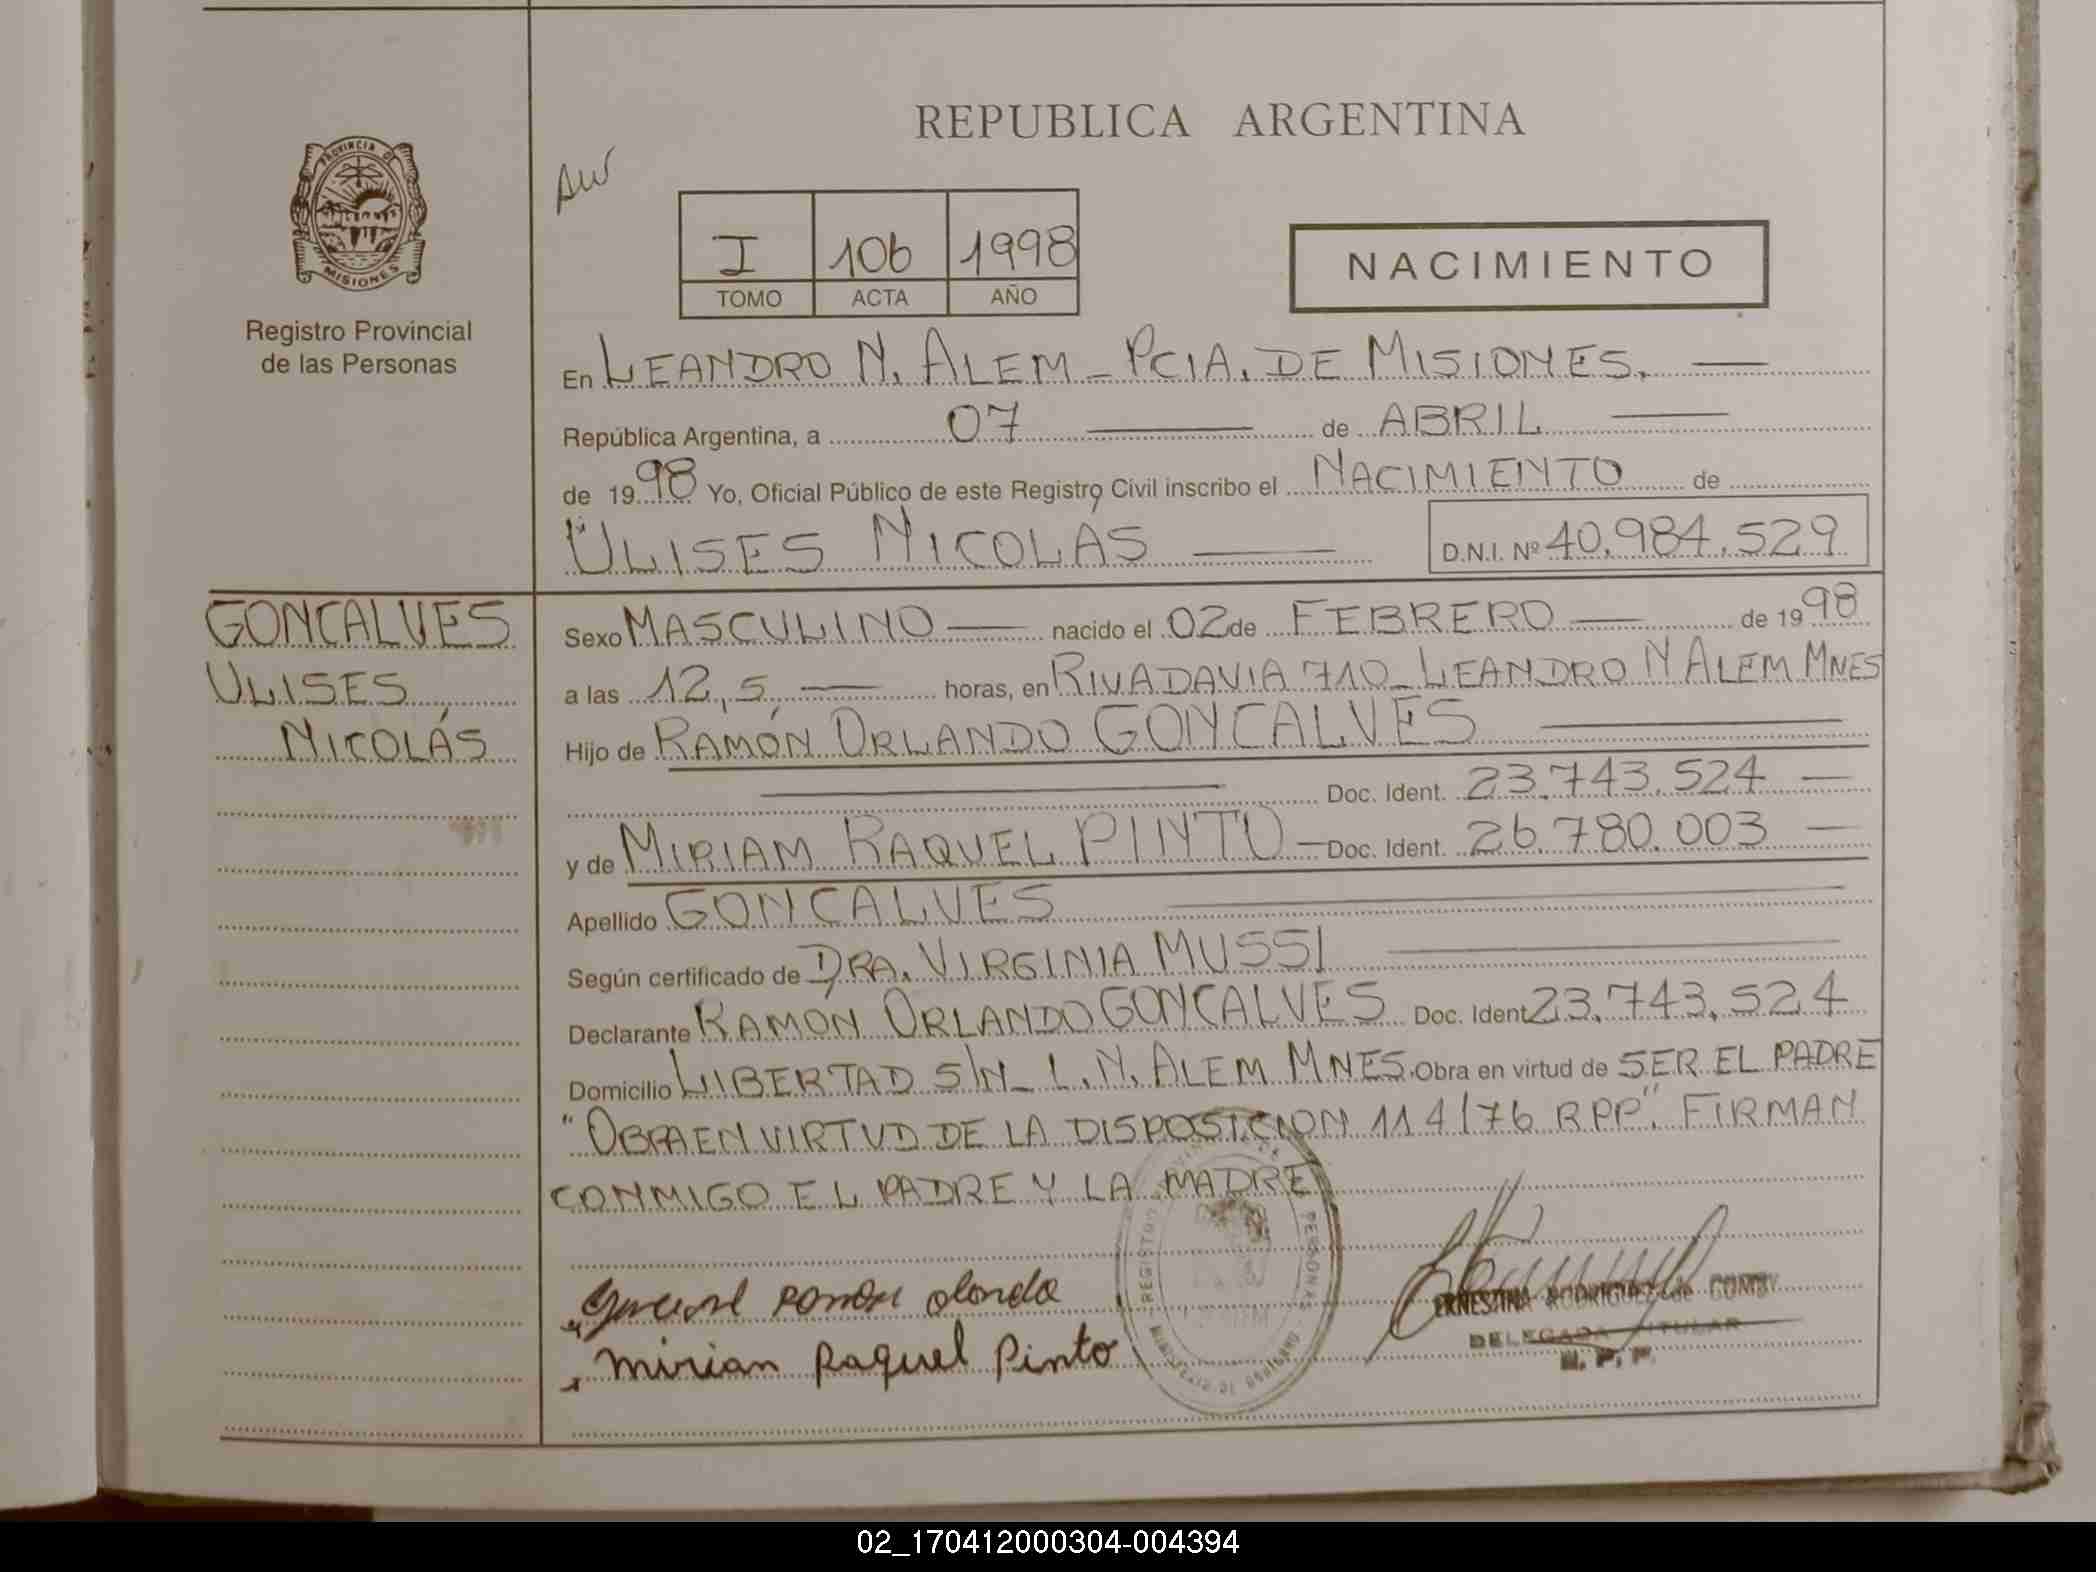 REPUBLICA ARGENTINA
PROVINCIA DE
MISIONES
Registro Provincial
de las Personas
I 106 1998
TOMO ACTA AÑO
NACIMIENTO
En LEANDRO N. ALEM - PCIA. DE MISIONES. —
República Argentina, a 07 — de ABRIL —
de 1998 Yo, Oficial Público de este Registro Civil inscribo el NACIMIENTO de
"ULISES NICOLÁS — D.N.I. Nº 40.984.529
GONCALVES
ULISES
NICOLÁS
Sexo MASCULINO — nacido el 02 de FEBRERO — de 1998
a las 12,5 — horas, en RIVADAVIA 710 - LEANDRO N ALEM MNES
Hijo de RAMÓN ORLANDO GONCALVES —
— Doc. Ident. 23.743.524 —
y de MIRIAM RAQUEL PINTO — Doc. Ident. 26.780.003 —
Apellido GONCALVES —
Según certificado de DRA. VIRGINIA MUSSI —
Declarante RAMON ORLANDO GONCALVES Doc. Ident 23.743.524
Domicilio LIBERTAD S/N - L.N. ALEM MNES. Obra en virtud de SER EL PADRE
"OBRA EN VIRTUD DE LA DISPOSICION 114/76 RPP". FIRMAN
CONMIGO EL PADRE Y LA MADRE
Ramon Orlando
Mirian Raquel Pinto
REGISTRO PERSONAS
ERNESTINA RODRIGUEZ de
DELEGADA TITULAR
02_170412000304-004394